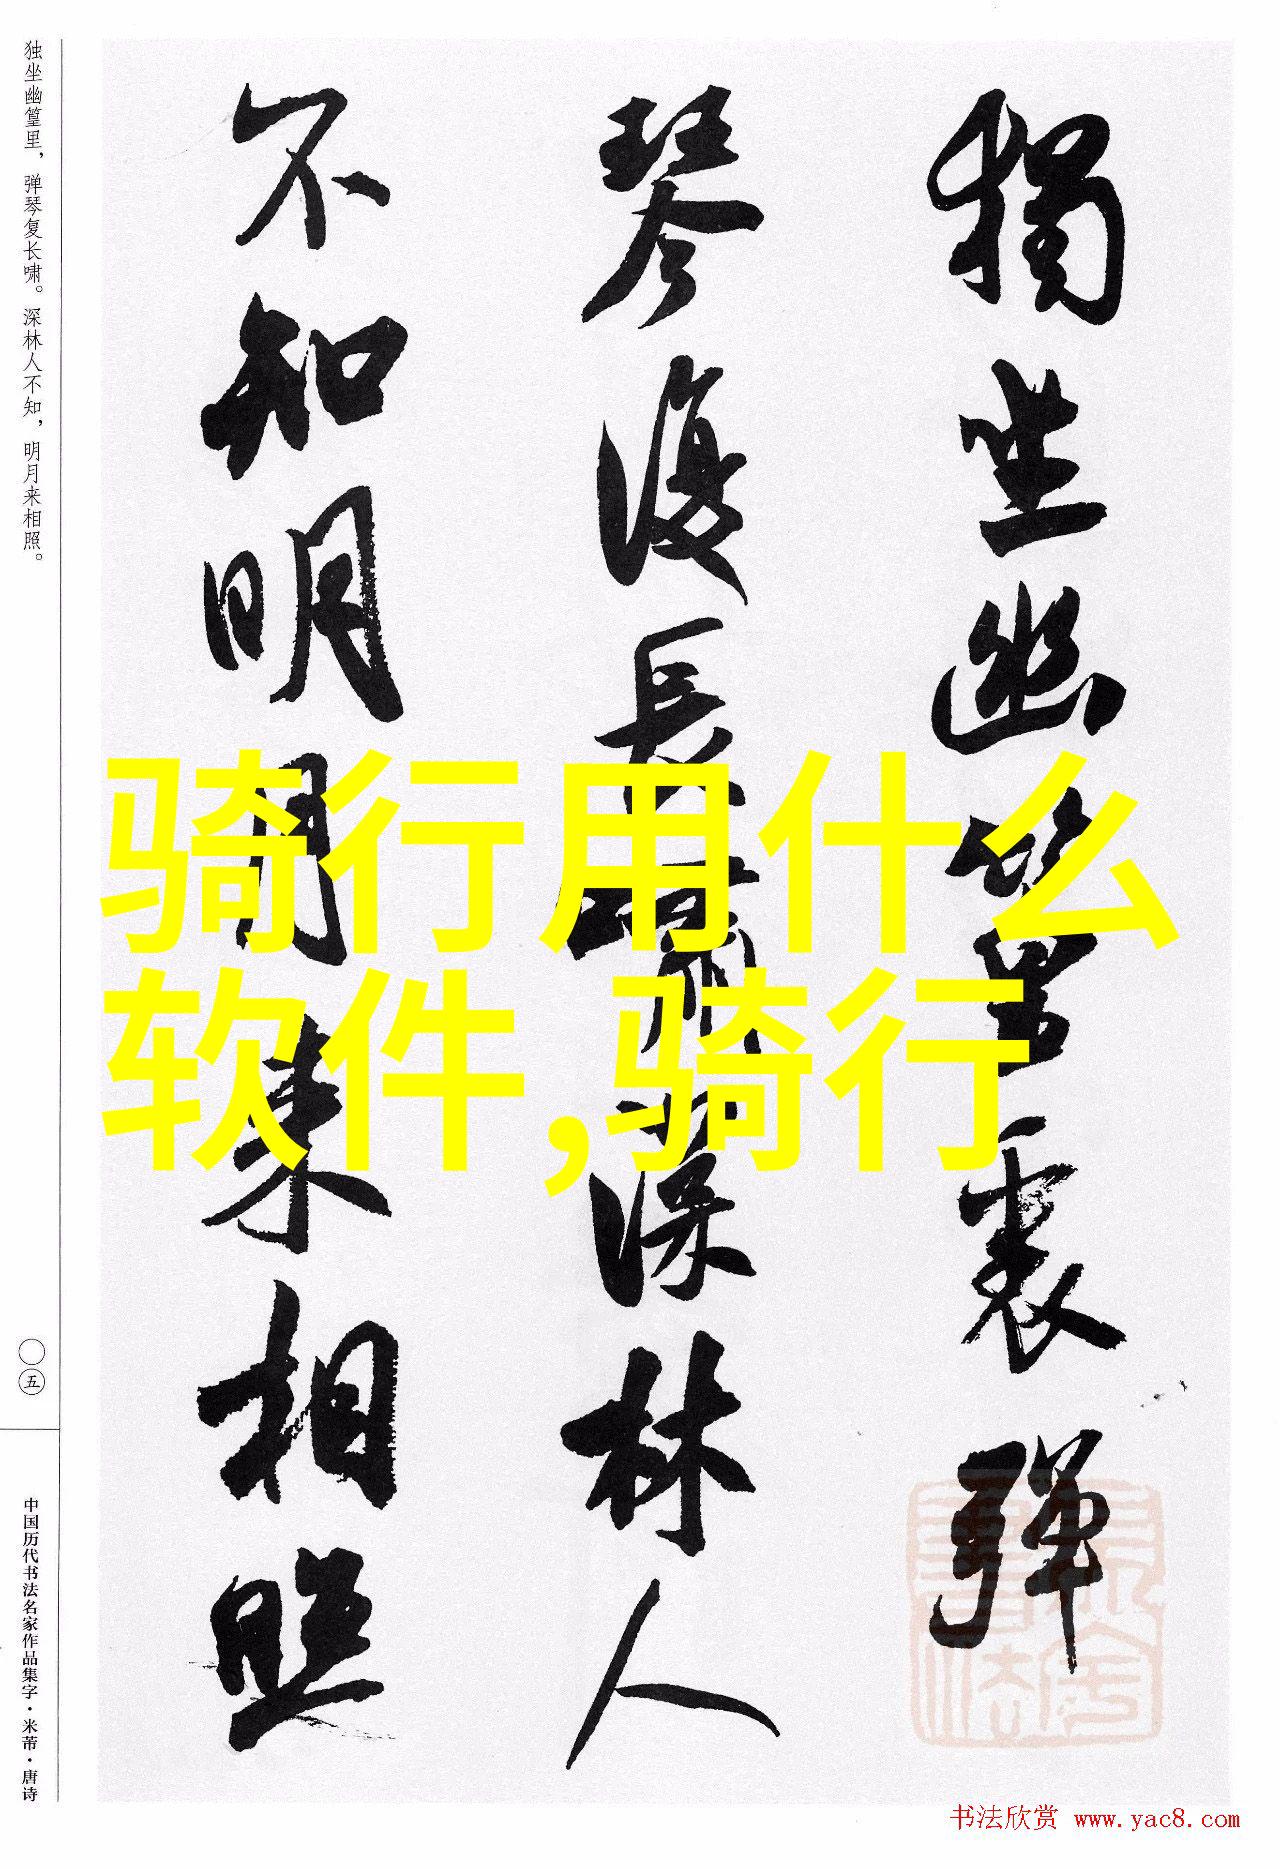 独坐幽篁里，弹琴复长啸。深林人不知，明月来相照。
獨坐幽篁裏彈
琴復長嘯深林人
不知明月来相照
骑行用什么
软件,骑行
〇五
中国历代书法名家作品集字·米芾·唐诗
书法欣赏 www.yac8.com